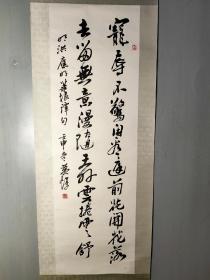 寵辱不驚閑看庭前花開花落
去留無意漫隨天外雲捲雲舒
明洪應明菜根譚句 壬申冬